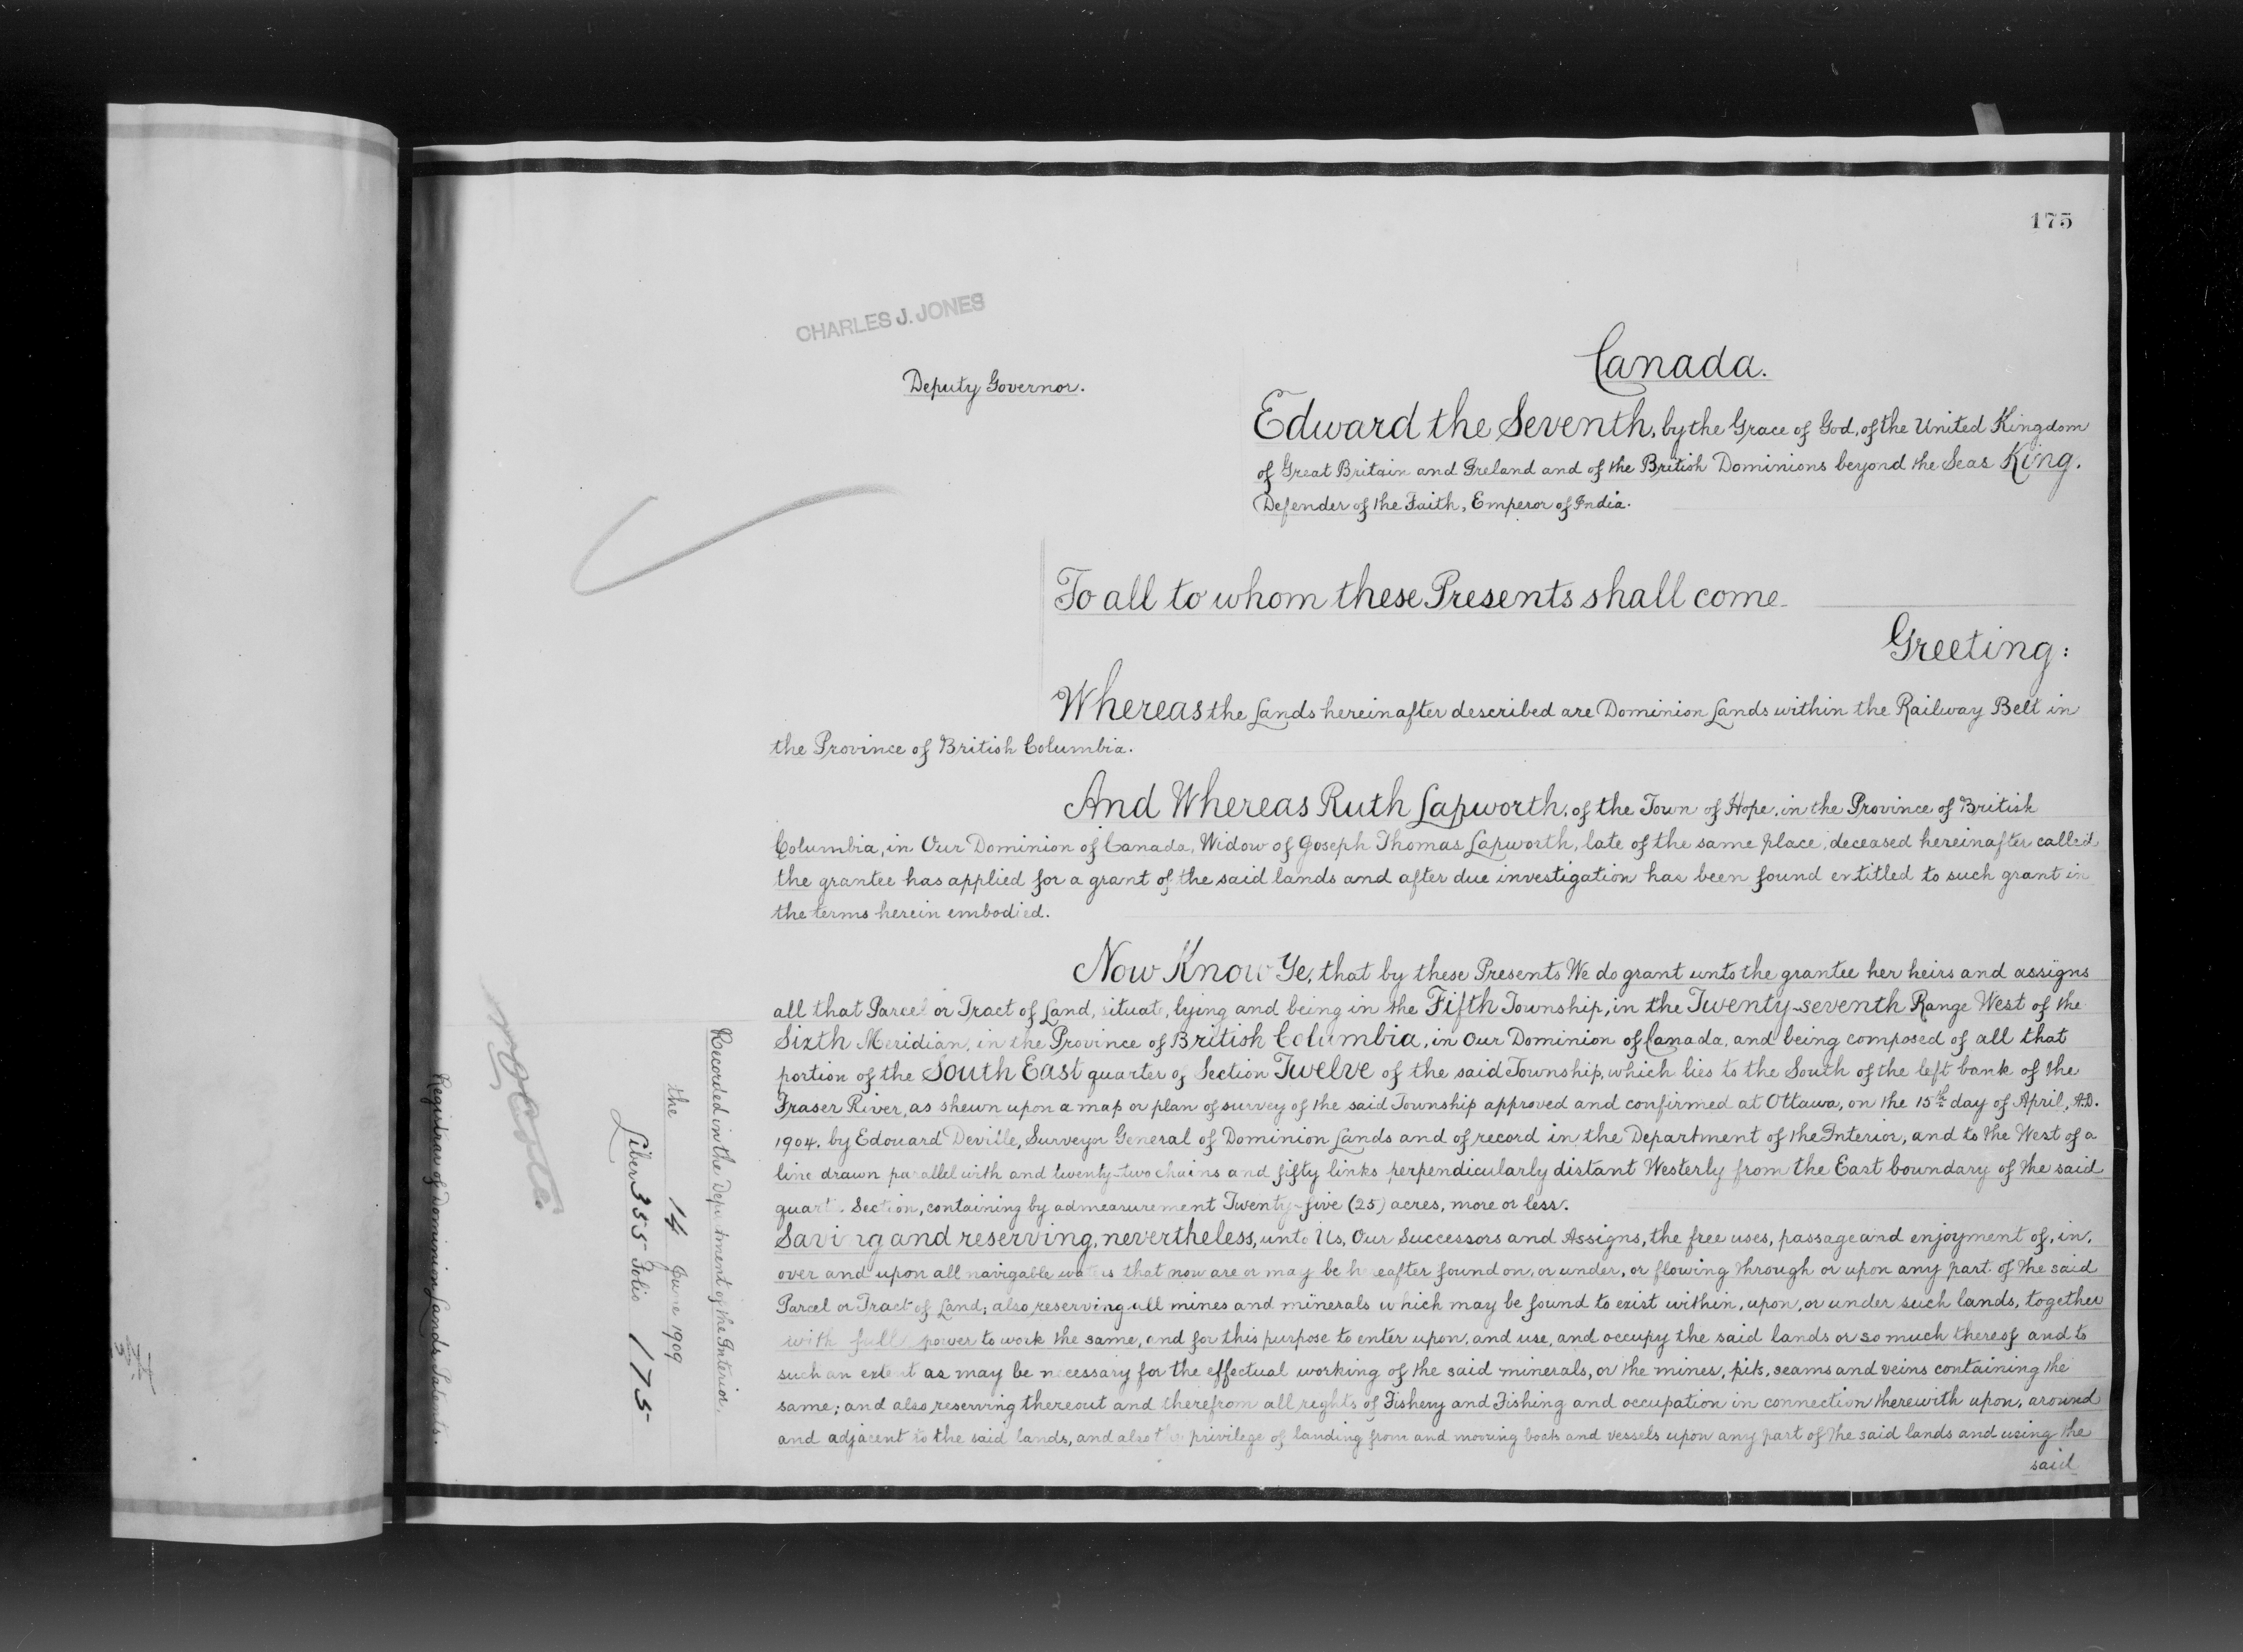 175
CHARLES J. JONES
Deputy Governor.
Canada.
Edward the Seventh, by the Grace of God, of the United Kingdom
of Great Britain and Ireland and of the British Dominions beyond the Seas King,
Defender of the Faith, Emperor of India.
To all to whom these Presents shall come
Greeting:
Whereas the Lands hereinafter described are Dominion Lands within the Railway Belt in
the Province of British Columbia.
And Whereas Ruth Lapworth, of the Town of Hope, in the Province of British
Columbia, in Our Dominion of Canada, Widow of Joseph Thomas Lapworth, late of the same place, deceased hereinafter called
the grantee has applied for a grant of the said lands and after due investigation has been found entitled to such grant in
the terms herein embodied.
Now Know Ye, that by these Presents We do grant unto the grantee her heirs and assigns
all that Parcel or Tract of Land, situate, lying and being in the Fifth Township, in the Twenty-seventh Range West of the
Sixth Meridian, in the Province of British Columbia, in Our Dominion of Canada, and being composed of all that
portion of the South East quarter of Section Twelve of the said Township, which lies to the South of the left bank of the
Fraser River, as shewn upon a map or plan of survey of the said Township approved and confirmed at Ottawa, on the 15th day of April, A.D.
1904, by Edouard Deville, Surveyor General of Dominion Lands and of record in the Department of the Interior, and to the West of a
line drawn parallel with and twenty-two chains and fifty links perpendicularly distant Westerly from the East boundary of the said
quarter Section, containing by admeasurement Twenty-five (25) acres, more or less.
Saving and reserving, nevertheless, unto Us, Our Successors and Assigns, the free uses, passage and enjoyment of, in,
over and upon all navigable waters that now are or may be hereafter found on, or under, or flowing through or upon any part of the said
Parcel or Tract of Land; also reserving all mines and minerals which may be found to exist within, upon, or under such lands, together
with full power to work the same, and for this purpose to enter upon, and use, and occupy the said lands or so much thereof and to
such an extent as may be necessary for the effectual working of the said minerals, or the mines, pits, seams and veins containing the
same; and also reserving thereout and therefrom all rights of Fishery and Fishing and occupation in connection therewith upon, around
and adjacent to the said lands, and also the privilege of landing from and mooring boats and vessels upon any part of the said lands and using the
said
Recorded in the Department of the Interior,
the 14 June 1909
Liber 355 Folio 175
Registrar of Dominion Lands Patents.